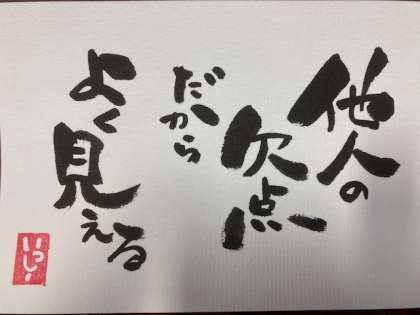 他人の
欠点
だから
よく見える
いっしー